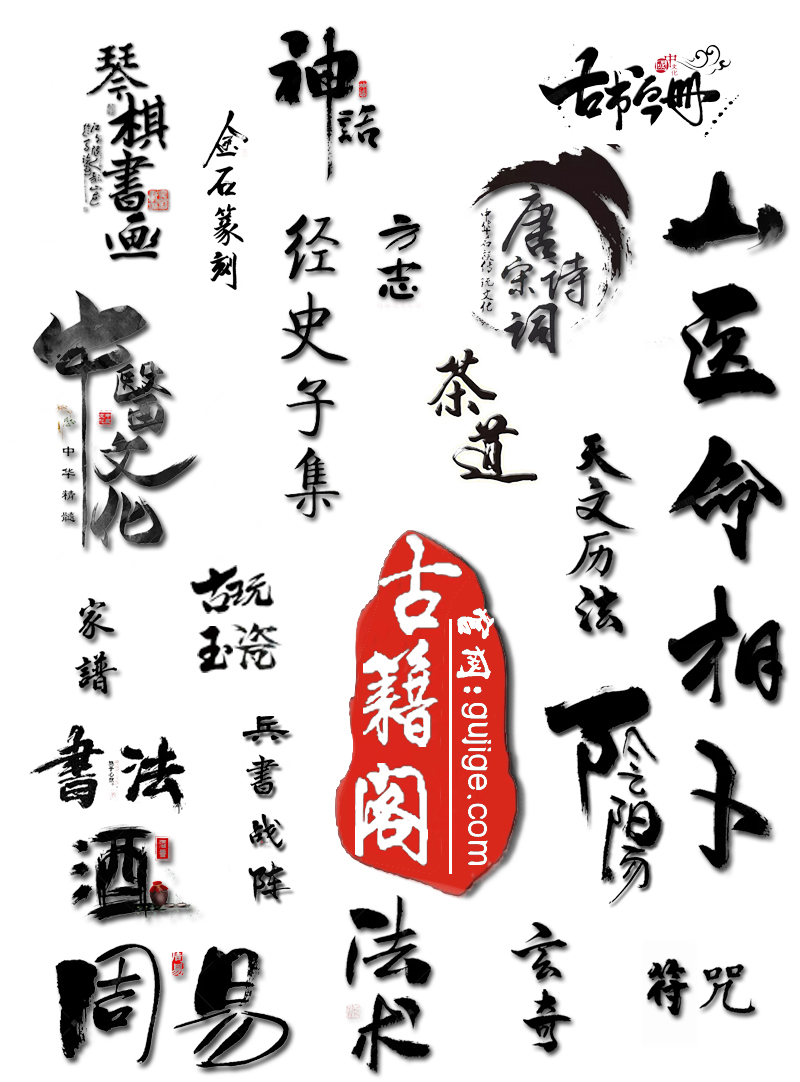 琴棋書画
金石篆刻
神話
古书画册
中國
文化
经史子集
方志
唐
宋诗
词
中华石詠傳玩文化
山医命相卜
中醫文化
中华精髓
茶道
天文历法
古籍阁
官网:gujige.com
家譜
古玩
玉瓷
陰陽
書法
兵書战阵
酒
周易
周易
法术
玄奇
符咒